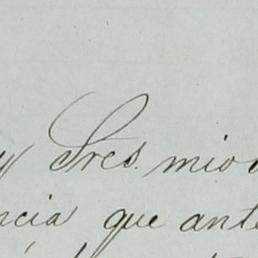 y Sres. mio
ncia que ante